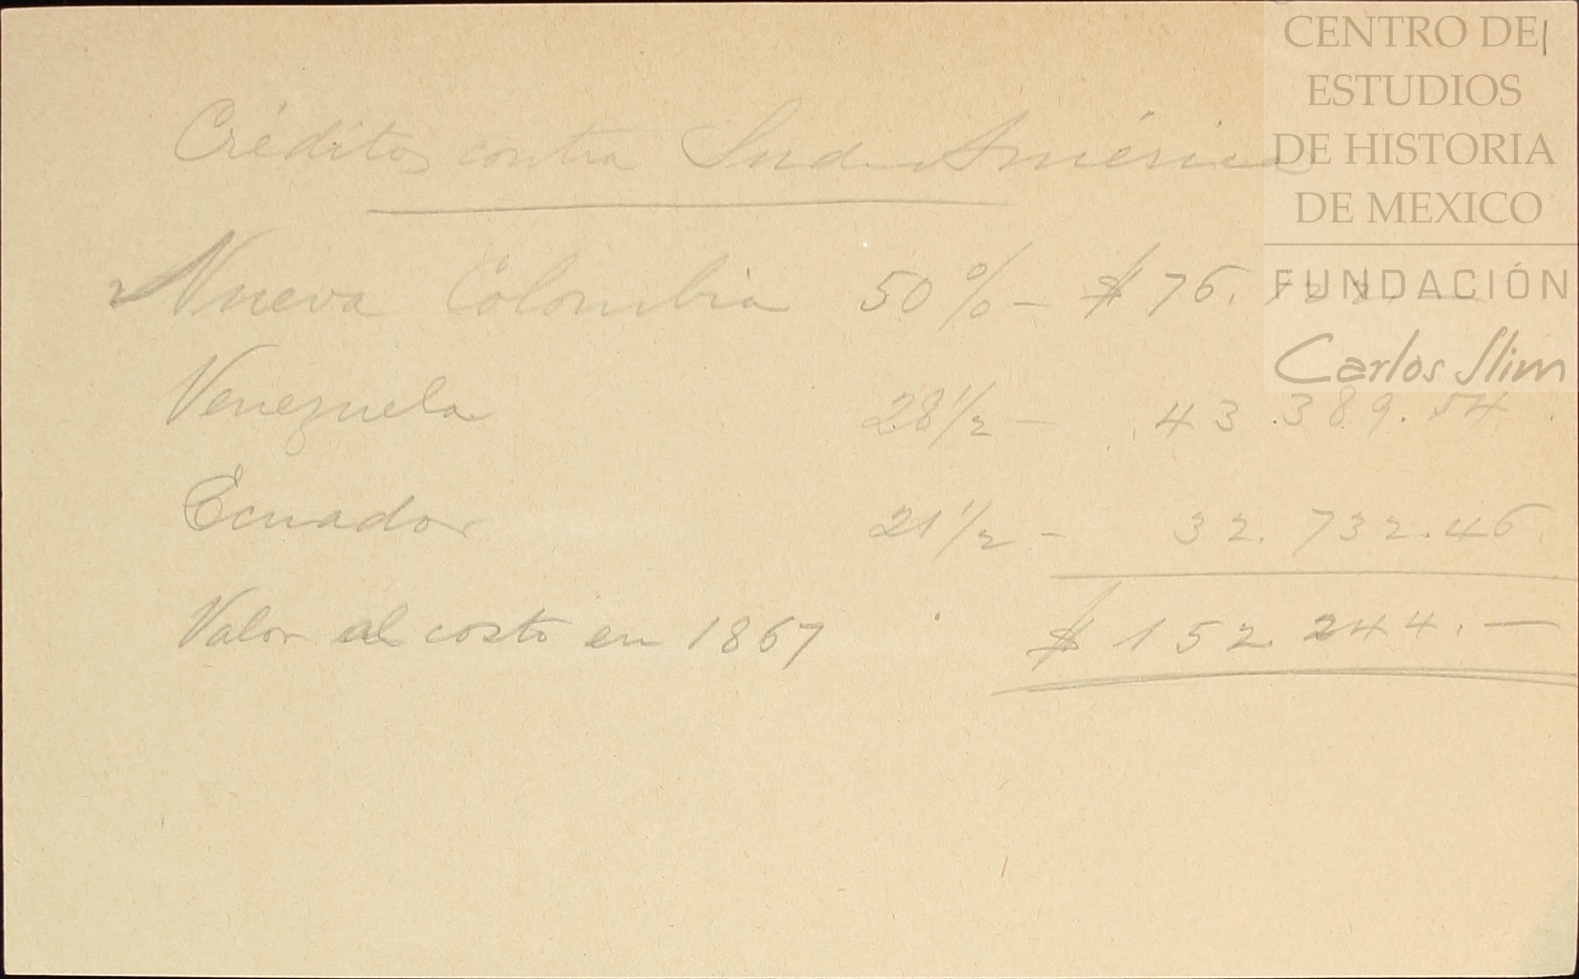 CENTRO DE
ESTUDIOS
DE HISTORIA
DE MEXICO
FUNDACIÓN
Carlos Slim
Créditos contra Sud América
Nueva Colombia 50% — $ 76.122.—
Venezuela 28 1/2 — 43.389.54
Ecuador 21 1/2 - 32.732.46
Valor al costo en 1867 $ 152.244.—